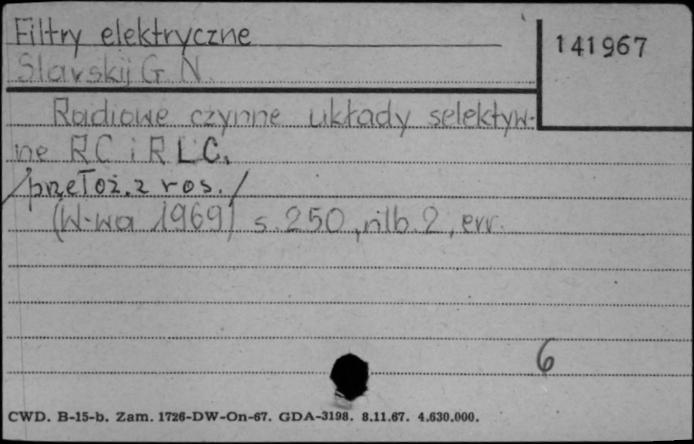 Filtry elektryczne
141967
Slavskij G. N.
Radiowe czynne układy selektyw-
ne RC i RLC.
/przełoż. z ros./
(W-wa 1969) s. 250, nlb. 2, err.
6
CWD. B-15-b. Zam. 1726-DW-On-67. GDA-3198. 8.11.67. 4.630.000.